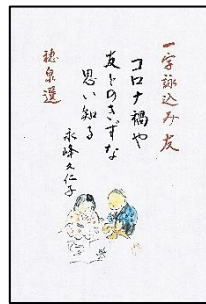 一字詠込み友
コロナ禍や
友とのきずな
思い知る
永峰久仁子
穂泉選